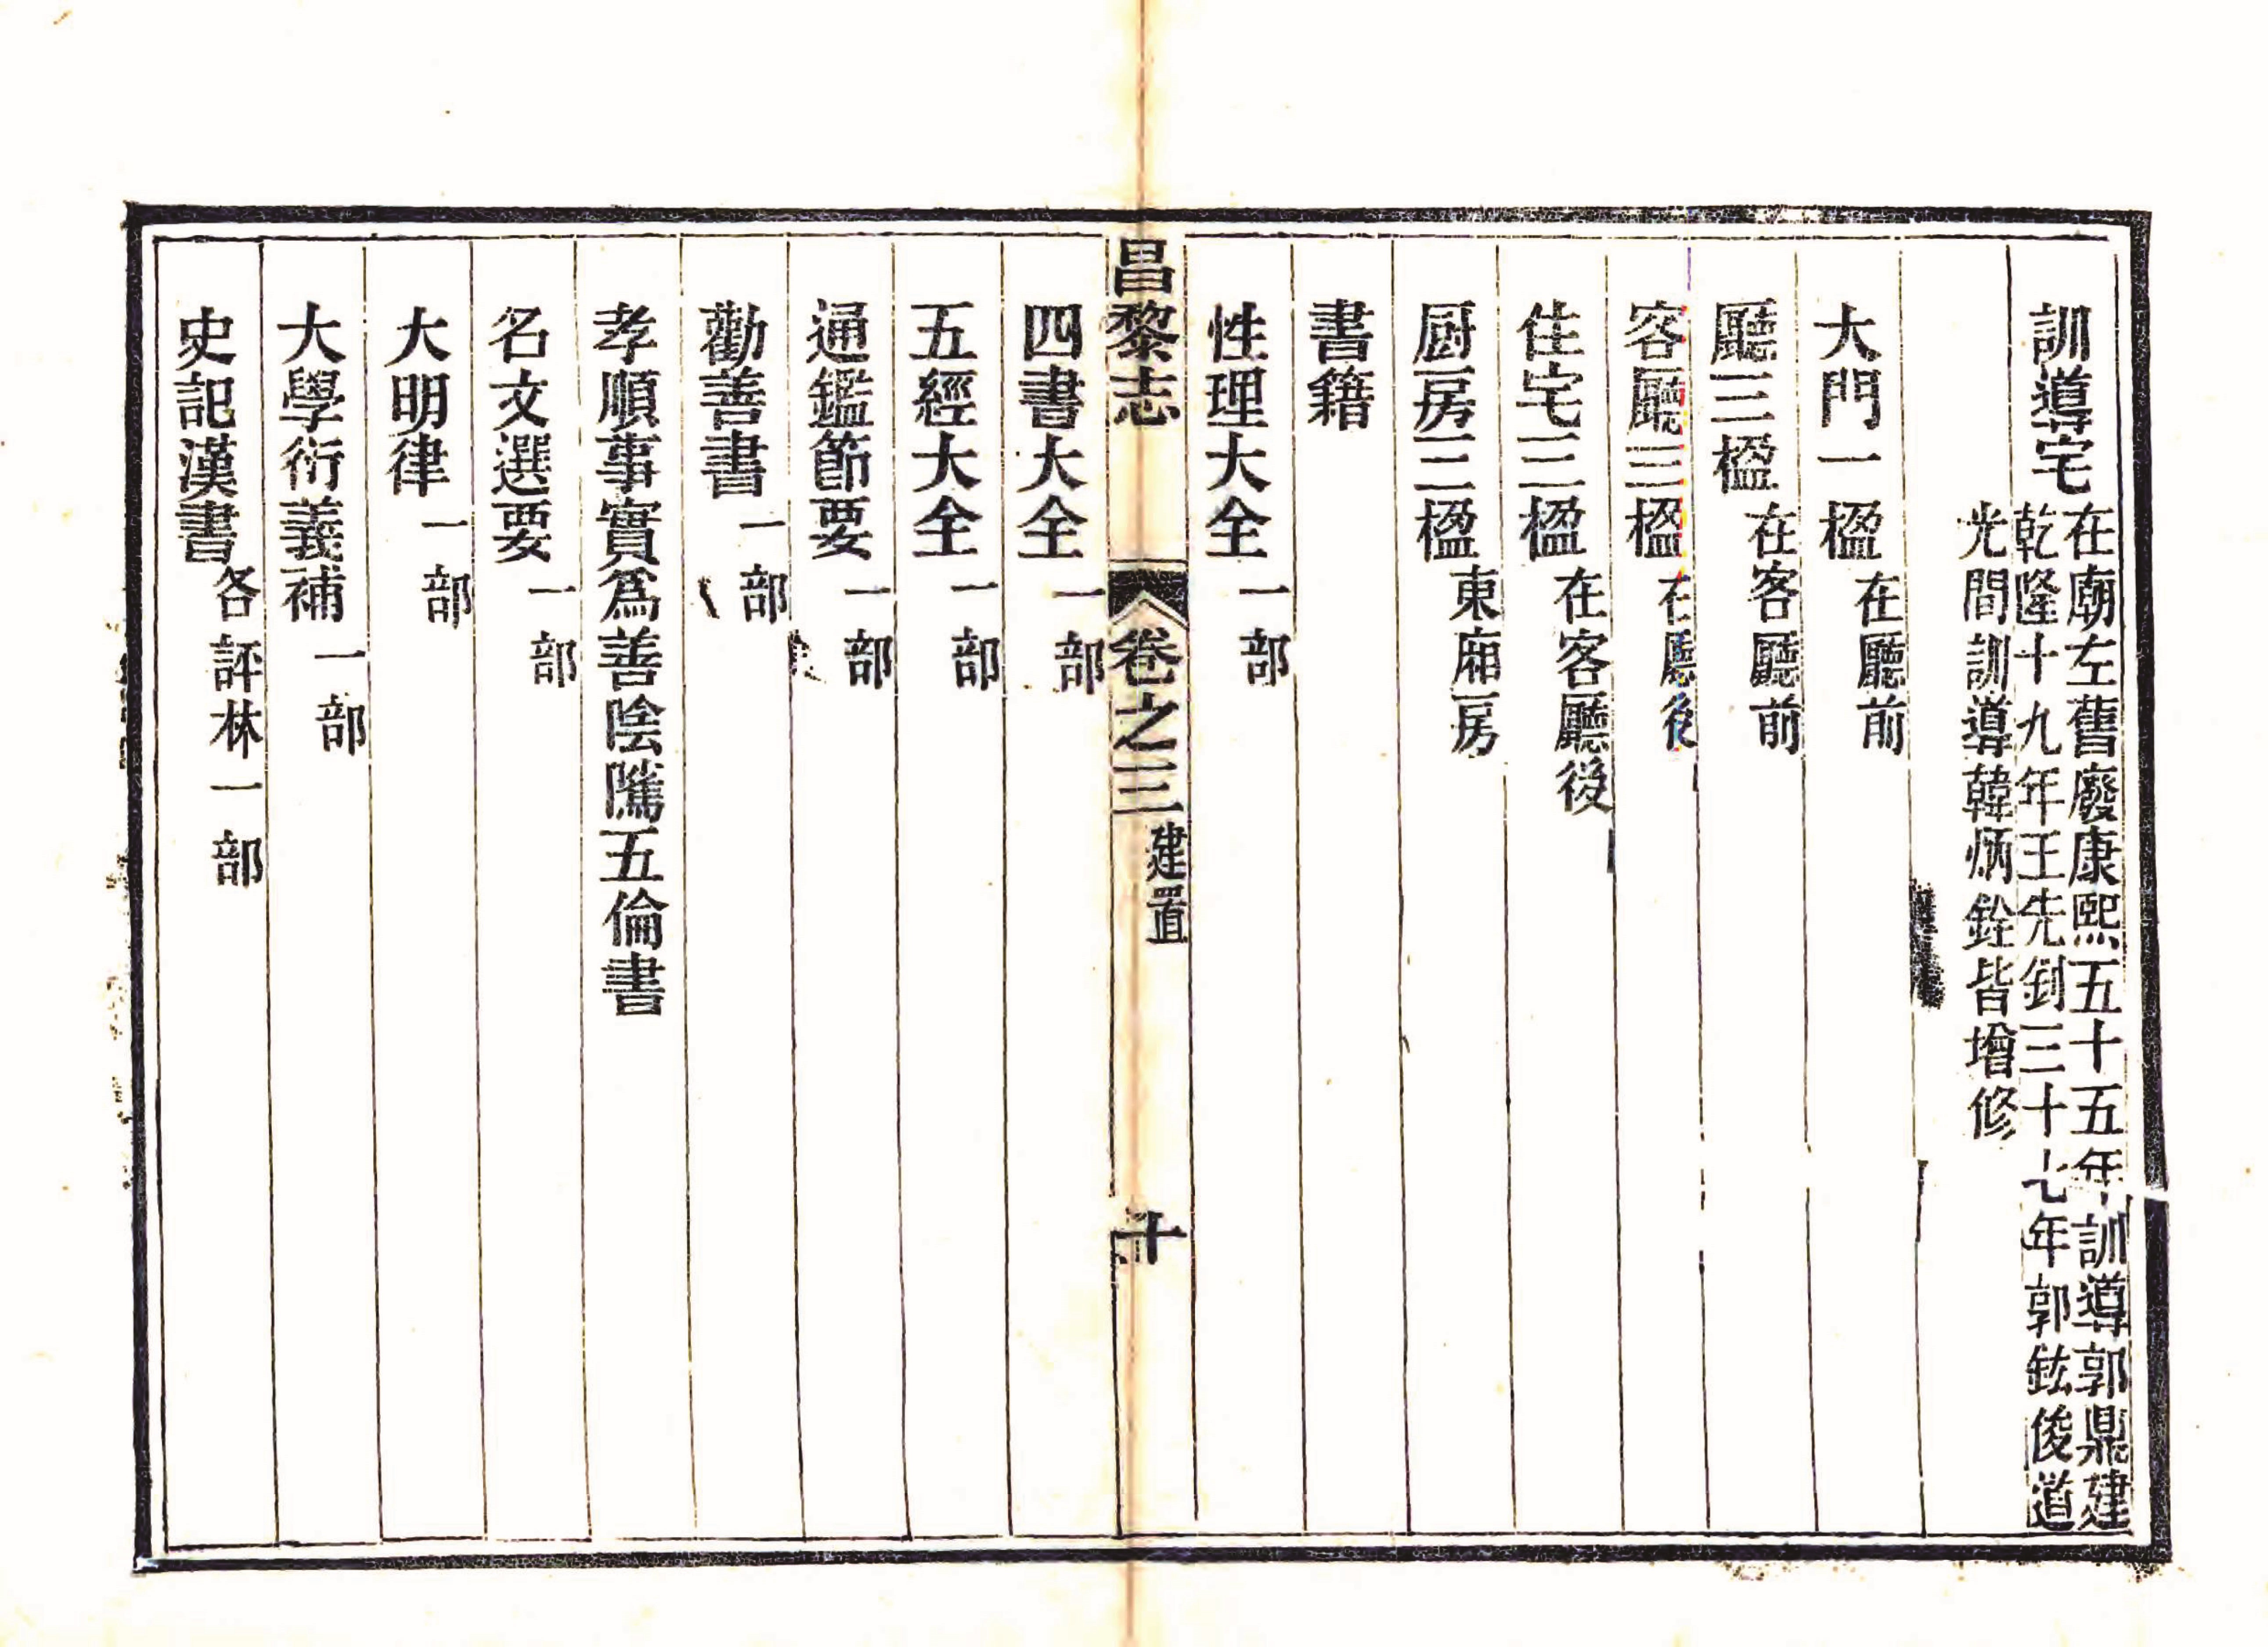 訓導宅在廟左舊廢康熙五十五年訓導郭鼎建
乾隆十九年王先釗三十七年郭鉉俊道
光間訓導韓炳銓皆增修
大門一楹在廳前
廳三楹在客廳前
客廳三楹在廳後
住宅三楹在客廳後
厨房三楹東廂房
書籍
性理大全一部
昌黎志 卷之三建置 十
四書大全一部
五經大全一部
通鑑節要一部
勸善書一部
孝順事實爲善陰隲五倫書
名文選要一部
大明律一部
大學衍義補一部
史記漢書各評林一部